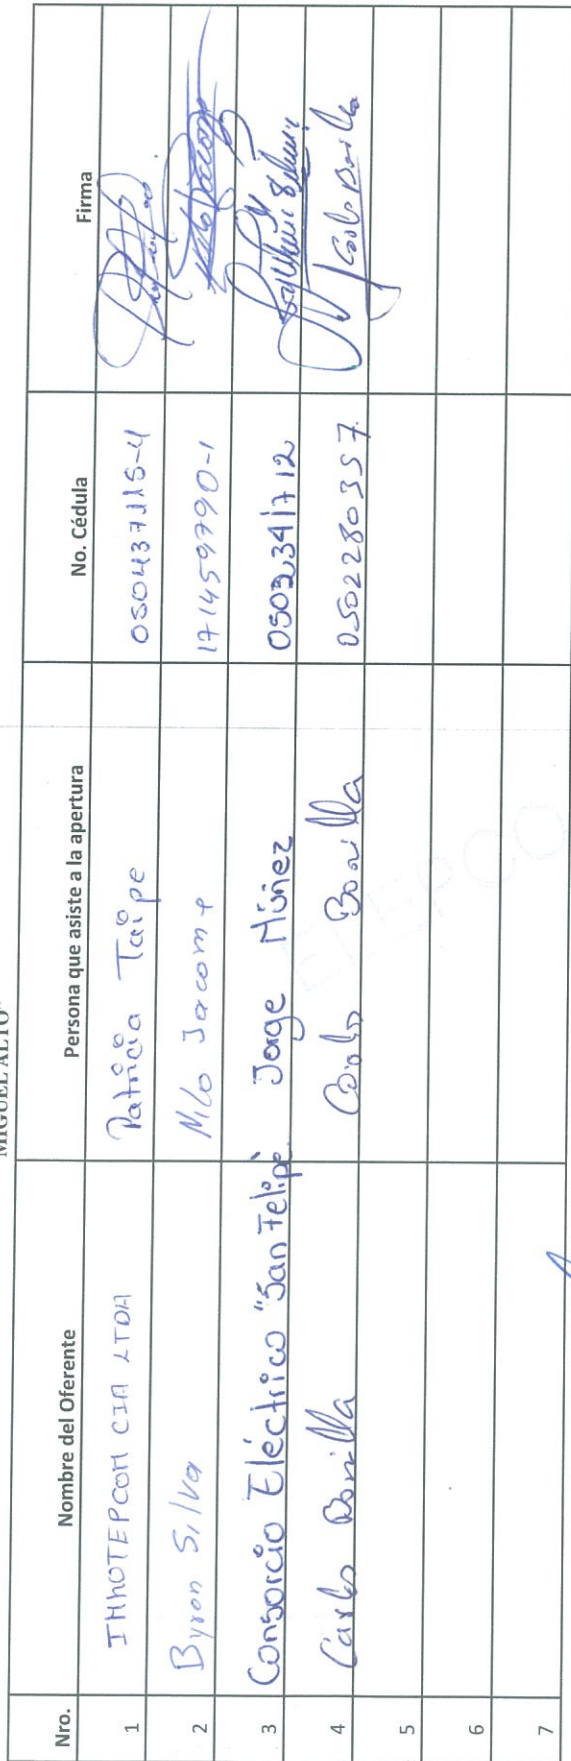 MIGUEL ALTO"
Nro. Nombre del Oferente Persona que asiste a la apertura No. Cédula Firma
1 IMHOTEPCOM CIA LTDA Patricia Taipe 050437115-4
2 Byron Silva Nilo Jacome 171459790-1
3 Consorcio Eléctrico "San Felipe" Jorge Múñez 0503341712
4 Carlos Bonilla Carlos Bonilla 0502280357
5
6
7